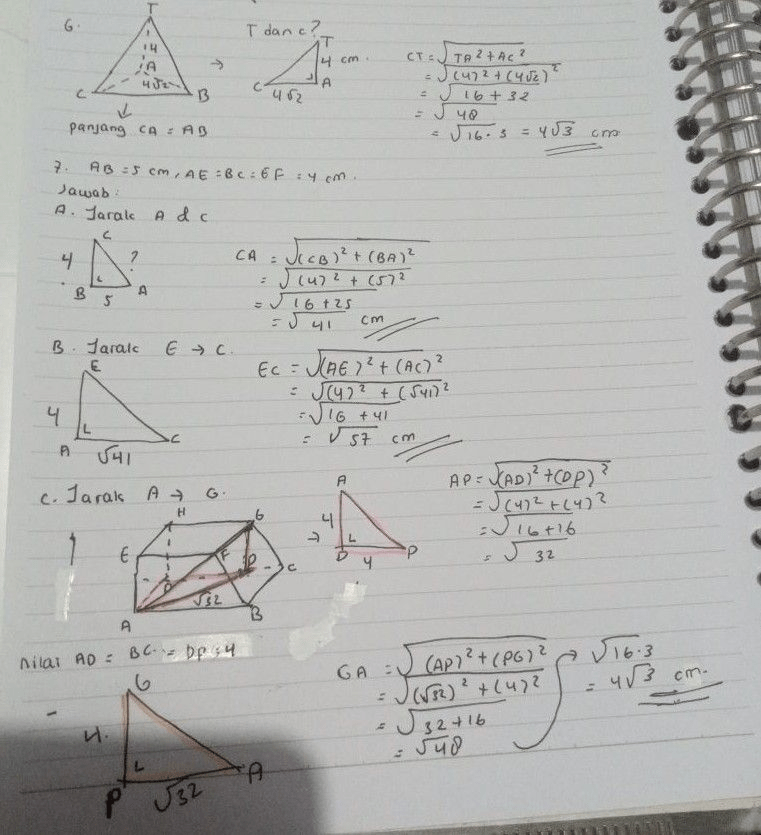 6.
T
4
A
4√2
C
B
panjang CA = AB
T dan c?
T
4 cm.
C
4√2
A
CT = √TA² + AC²
= √(4)² + (4√2)²
= √16 + 32
= √48
= √16 · 3 = 4√3 cm
7. AB = 5 cm, AE = BC = EF = 4 cm.
Jawab :
A. Jarak A d c
C
4
?
B
5
A
CA = √(CB)² + (BA)²
= √(4)² + (5)²
= √16 + 25
= √41 cm
B. Jarak E → C.
E
4
A
√41
C
EC = √(AE)² + (AC)²
= √(4)² + (√41)²
= √16 + 41
= √57 cm
C. Jarak A → G.
H
G
E
F
P
C
D
√32
A
B
A
4
D
4
P
AP = √(AD)² + (DP)²
= √(4)² + (4)²
= √16 + 16
= √32
Nilai AD = BC = DP = 4
G
4.
P
√32
A
GA = √(AP)² + (PG)²
= √(√32)² + (4)²
= √32 + 16
= √48
√16 · 3
= 4√3 cm.